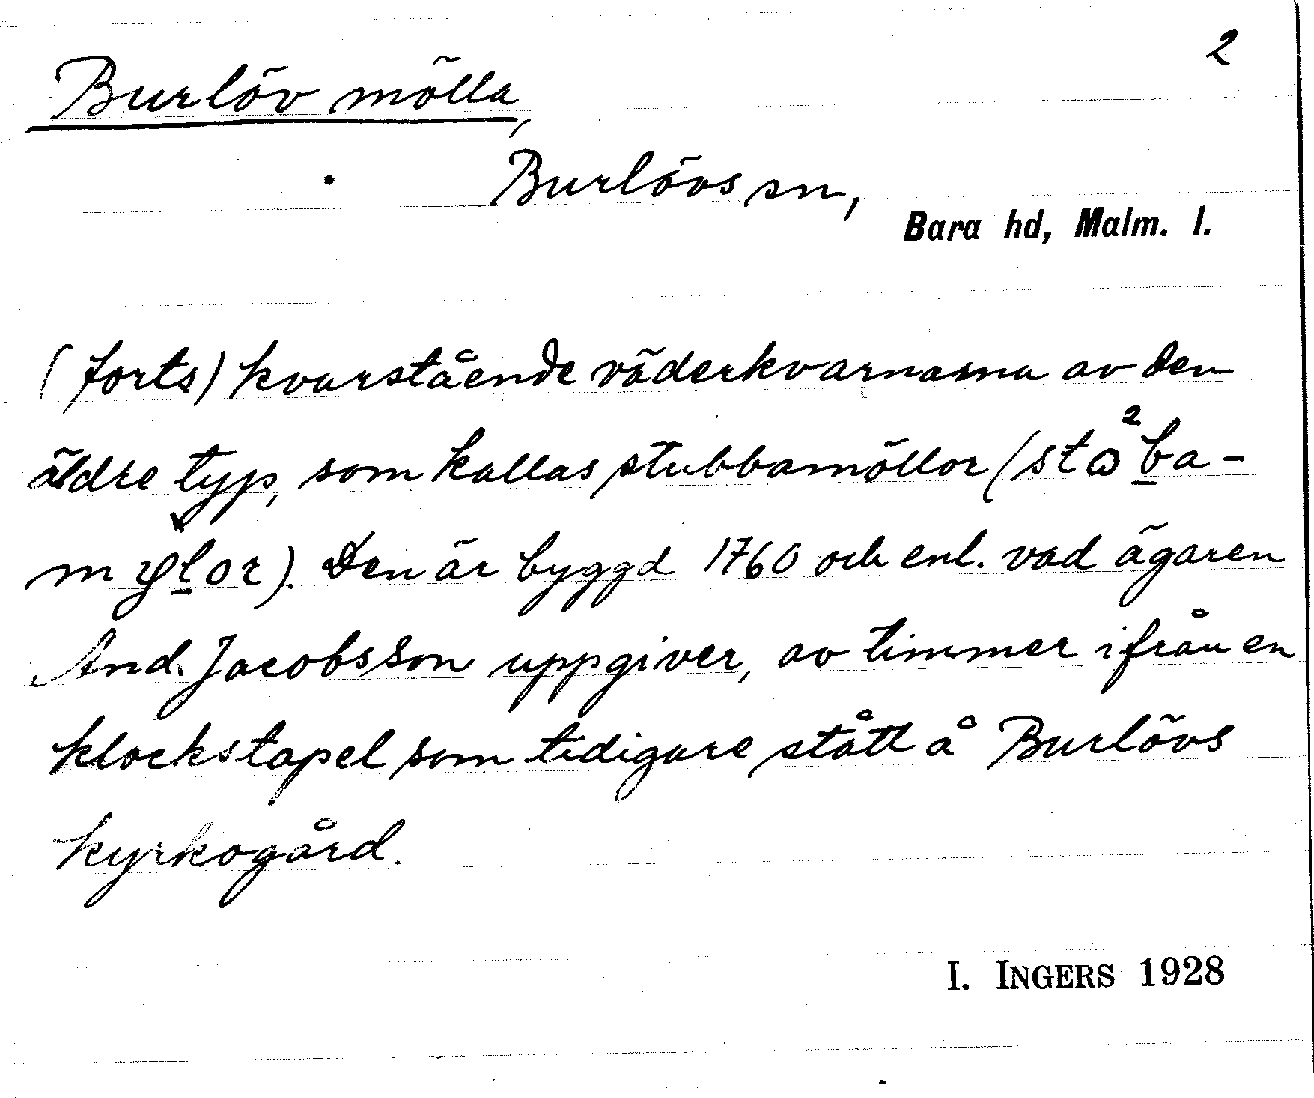 2
Burlöv mölla,
Burlövs sn,
Bara hd, Malm. l.
(forts) kvarstående väderkvarnarna av den
äldre typ, som kallas stubbamöllor (stω²ba-
mylor). Den är byggd 1760 och enl. vad ägaren
And. Jacobsson uppgiver, av timmer ifrån en
klockstapel som tidigare stått å Burlövs
kyrkogård.
I. INGERS 1928